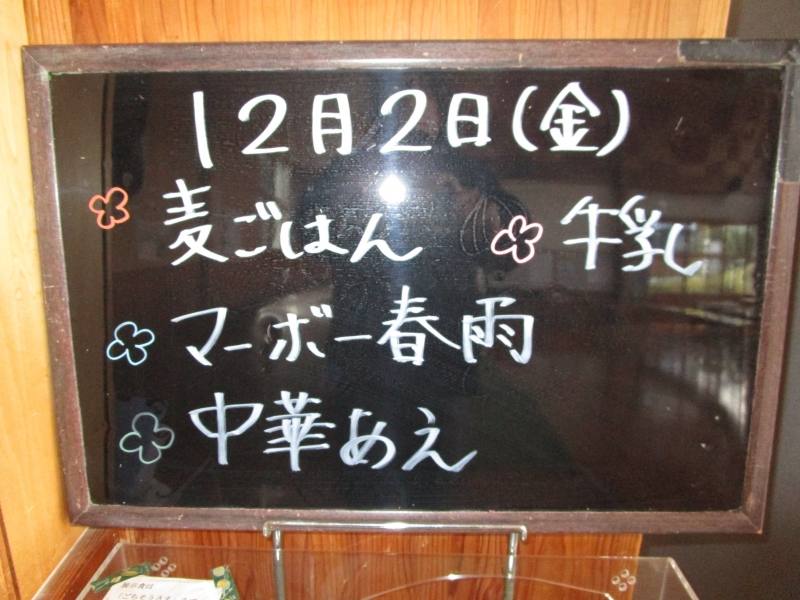 12月2日(金)
麦ごはん 牛乳
マーボー春雨
中華あえ